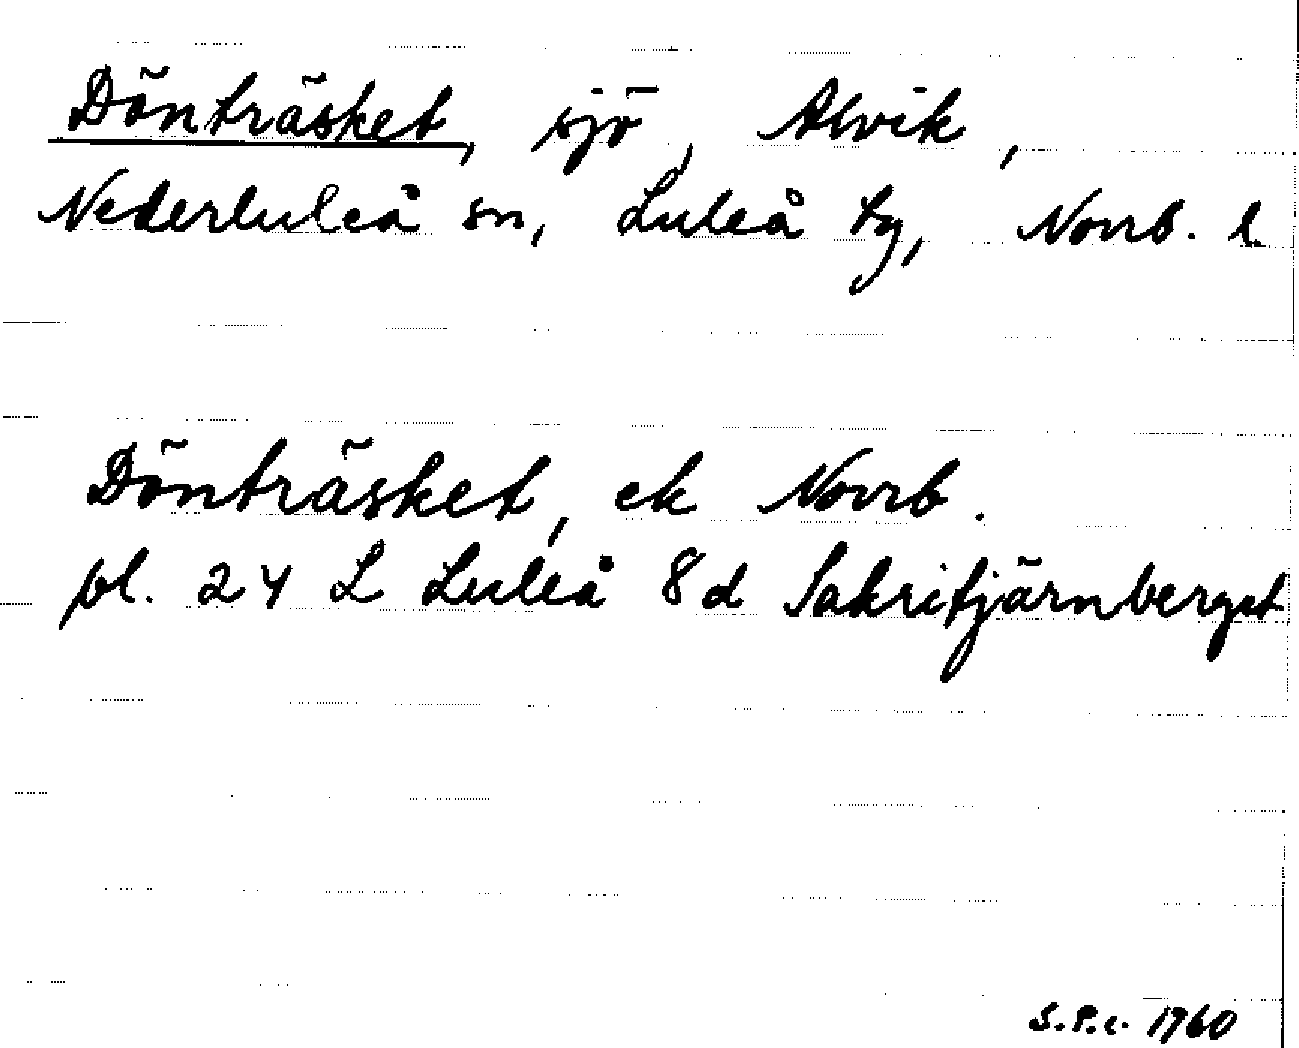 Dönträsket, sjö, Alvik,
Nederluleå sn, Luleå tg, Norrb. l
Dönträsket, ek Norrb.
bl. 24 L Luleå 8d Sakritjärnberget
S.P.c. 1960